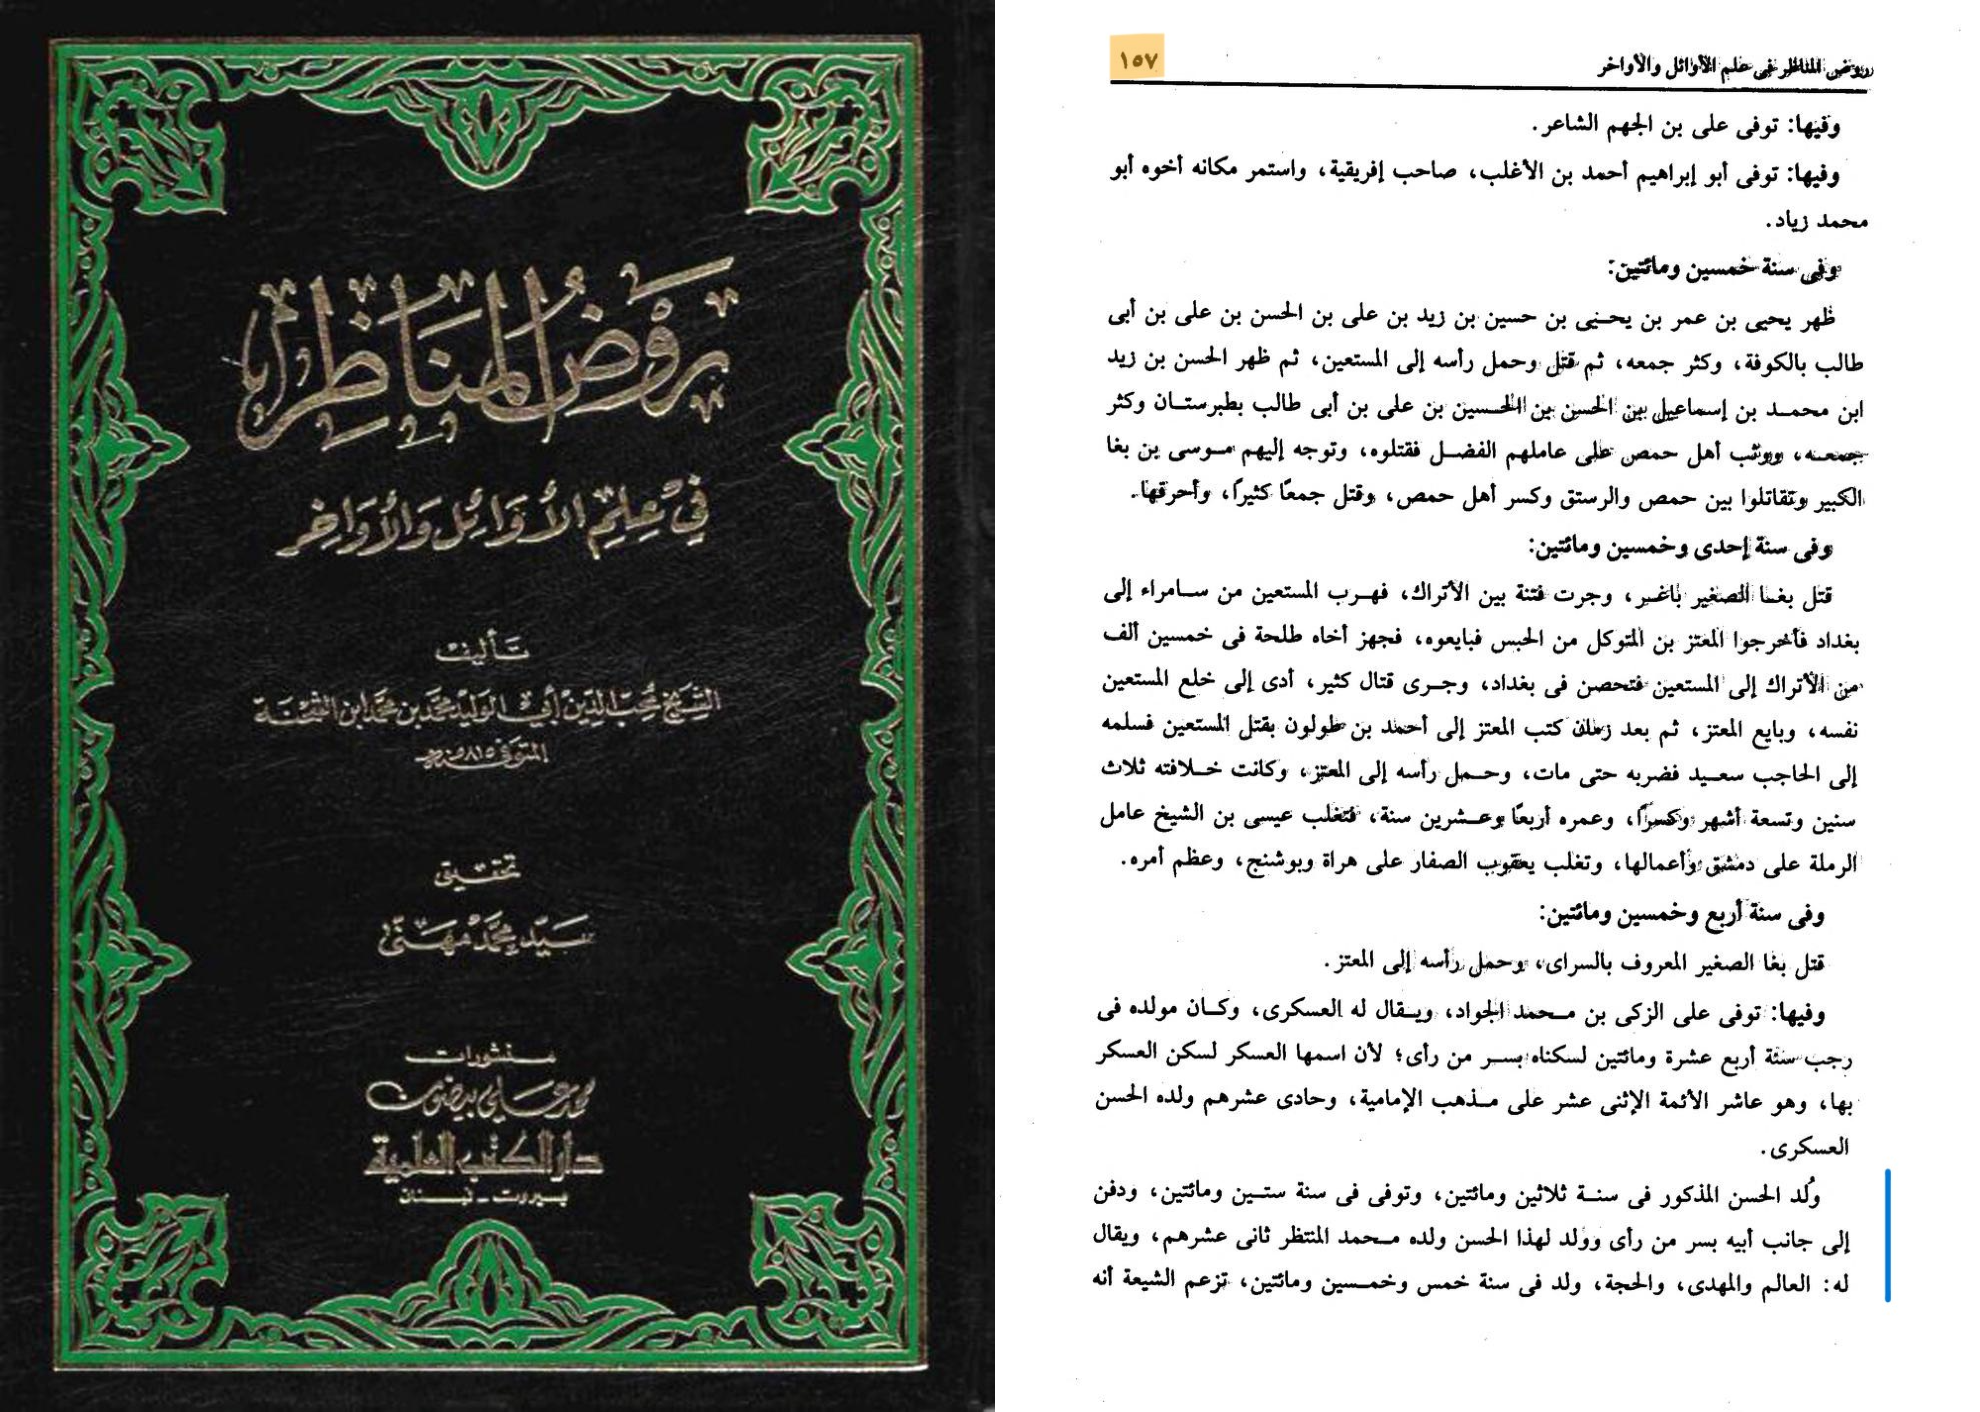 روض المناظر
في علم الأوائل والأواخر
تأليف
الشيخ محب الدين أبي الوليد محمد بن محمد ابن الشحنة
المتوفى ٨١٥ هـ
تحقيق
سيد محمد مهنى
منشورات
محمد علي بيضون
دار الكتب العلمية
بيروت - لبنان
روض المناظر فى علم الأوائل والأواخر ١٥٧
وفيها: توفى على بن الجهم الشاعر.
وفيها: توفى أبو إبراهيم أحمد بن الأغلب، صاحب إفريقية، واستمر مكانه أخوه أبو
محمد زياد.
وفى سنة خمسين ومائتين:
ظهر يحيى بن عمر بن يحيى بن حسين بن زيد بن على بن الحسن بن على بن أبى
طالب بالكوفة، وكثر جمعه، ثم قتل وحمل رأسه إلى المستعين، ثم ظهر الحسن بن زيد
ابن محمد بن إسماعيل بن الحسن بن الحسين بن على بن أبى طالب بطبرستان وكثر
جمعه، ووثب أهل حمص على عاملهم الفضل فقتلوه، وتوجه إليهم موسى بن بغا
الكبير وتقاتلوا بين حمص والرستق وكسر أهل حمص، وقتل جمعًا كثيرًا، وأحرقها.
وفى سنة إحدى وخمسين ومائتين:
قتل بغا الصغير باغر، وجرت فتنة بين الأتراك، فهرب المستعين من سامراء إلى
بغداد فأخرجوا المعتز بن المتوكل من الحبس فبايعوه، فجهز أخاه طلحة فى خمسين ألف
من الأتراك إلى المستعين فتحصن فى بغداد، وجرى قتال كثير، أدى إلى خلع المستعين
نفسه، وبايع المعتز، ثم بعد زمان كتب المعتز إلى أحمد بن طولون بقتل المستعين فسلمه
إلى الحاجب سعيد فضربه حتى مات، وحمل رأسه إلى المعتز، وكانت خلافته ثلاث
سنين وتسعة أشهر وكسرًا، وعمره أربعًا وعشرين سنة، فتغلب عيسى بن الشيخ عامل
الرملة على دمشق وأعمالها، وتغلب يعقوب الصفار على هراة وبوشنج، وعظم أمره.
وفى سنة أربع وخمسين ومائتين:
قتل بغا الصغير المعروف بالسراى، وحمل رأسه إلى المعتز.
وفيها: توفى على الزكى بن محمد الجواد، ويقال له العسكرى، وكان مولده فى
رجب سنة أربع عشرة ومائتين لسكناه بسر من رأى؛ لأن اسمها العسكر لسكن العسكر
بها، وهو عاشر الأئمة الإثنى عشر على مذهب الإمامية، وحادى عشرهم ولده الحسن
العسكرى.
وُلد الحسن المذكور فى سنة ثلاثين ومائتين، وتوفى فى سنة ستين ومائتين، ودفن
إلى جانب أبيه بسر من رأى وولد لهذا الحسن ولده محمد المنتظر ثانى عشرهم، ويقال
له: العالم والمهدى، والحجة، ولد فى سنة خمس وخمسين ومائتين، تزعم الشيعة أنه